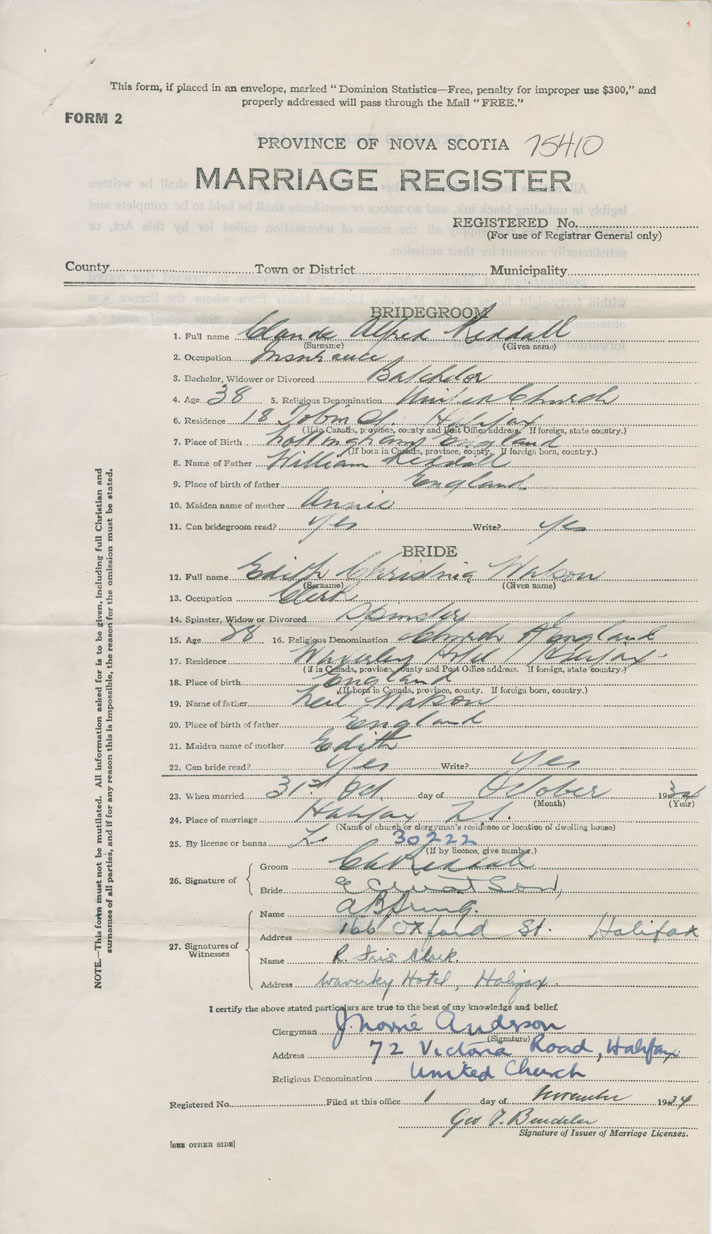 This form, if placed in an envelope, marked "Dominion Statistics—Free, penalty for improper use $300," and
properly addressed will pass through the Mail "FREE."
FORM 2
PROVINCE OF NOVA SCOTIA 75410
MARRIAGE REGISTER
REGISTERED No.
(For use of Registrar General only)
County Town or District Municipality
BRIDEGROOM
1. Full name Claude Alfred
(Surname) (Given name)
2. Occupation Insurance
3. Bachelor, Widower or Divorced Batchelor
4. Age 38 5. Religious Denomination United Church
6. Residence 18 Tobin St. Halifax
(If in Canada, province, county and Post Office address. If foreign, state country.)
7. Place of Birth Nottingham England
(If born in Canada, province, county. If foreign born, country.)
8. Name of Father William
9. Place of birth of father England
10. Maiden name of mother Annie
11. Can bridegroom read? Yes Write? Yes
BRIDE
12. Full name Edith Christina Watson
(Surname) (Given name)
13. Occupation Clerk
14. Spinster, Widow or Divorced Spinster
15. Age 28 16. Religious Denomination Church of England
17. Residence Waverley Hotel Halifax
(If in Canada, province, county and Post Office address. If foreign, state country.)
18. Place of birth England
(If born in Canada, province, county. If foreign born, country.)
19. Name of father Neil Watson
20. Place of birth of father England
21. Maiden name of mother Edith
22. Can bride read? Yes Write? Yes
23. When married 31st Oct. day of October 1934
(Month) (Year)
24. Place of marriage Halifax N.S.
(Name of church or clergyman's residence or location of dwelling house)
25. By license or banns L. 30222
(If by licence, give number.)
26. Signature of
Groom
Bride E C Watson,
27. Signatures of
Witnesses
Name
Address 166 Oxford St. Halifax
Name R. Clark.
Address Waverley Hotel, Halifax.
I certify the above stated particulars are true to the best of my knowledge and belief.
Clergyman J. Norrie Anderson
(Signature)
Address 72 Victoria Road, Halifax
Religious Denomination United Church
Registered No. Filed at this office 1 day of November 1934
Geo
Signature of Issuer of Marriage Licenses.
[SEE OTHER SIDE]
NOTE.—This form must not be mutilated. All information asked for is to be given, including full Christian and
surnames of all parties, and if for any reason this is impossible, the reason for the omission must be stated.